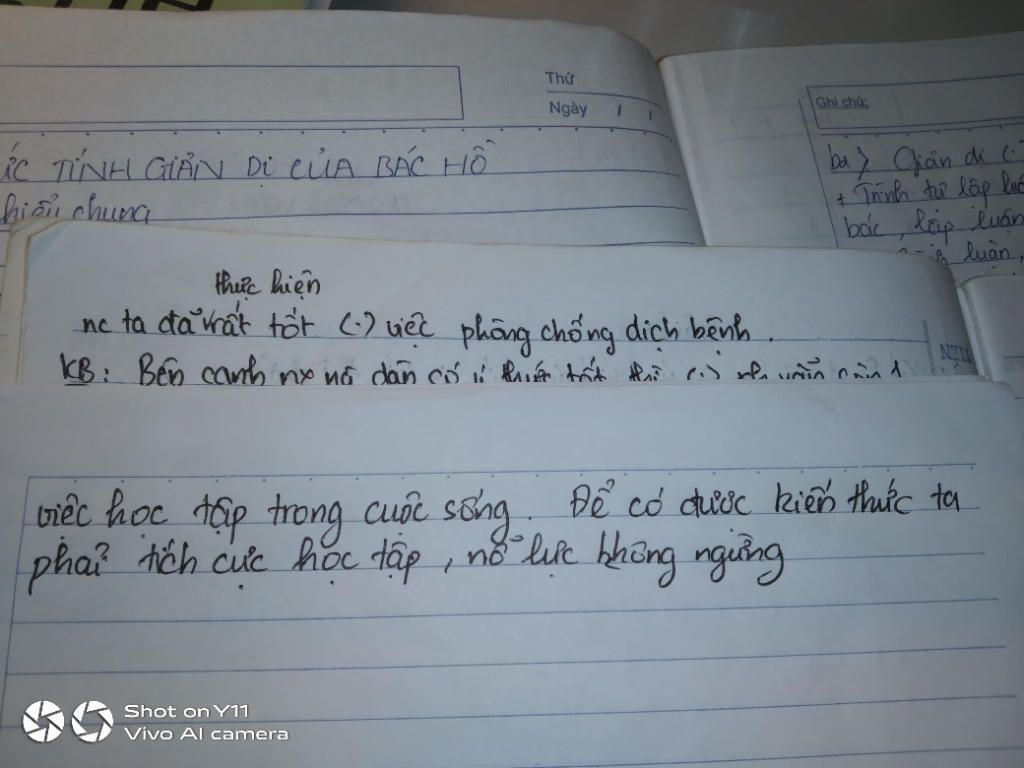 Thứ
Ngày / /
ỨC TÍNH GIẢN DỊ CỦA BÁC HỒ
hiểu chung
Ghi chú:
ba> Giản dị (
+ Trình tự lập luận
bác, lập luận
luận,
thực hiện
nc ta đã rất tốt (.) việc phòng chống dịch bệnh.
KB: Bên cạnh có ý thức tốt thì (.) vẫn còn
việc học tập trong cuộc sống. Để có được kiến thức ta
phải tích cực học tập, nỗ lực không ngừng
Shot on Y11
Vivo AI camera